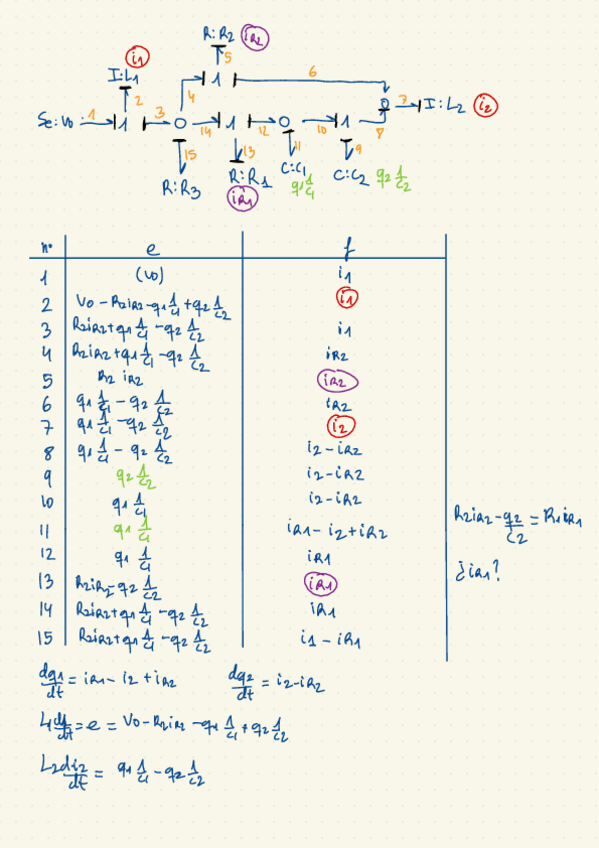 R:R2 iR2
i1
5
I:L1 1 6
2 4
Se:V0 1 1 3 0 14 1 12 0 10 1 8 0 7 I:L2 i2
15 13 11 9
R:R3 R:R1 C:C1 C:C2 q2 1/C2
iR1 q1 1/C1
nº e f
1 (V0) i1
2 V0 - R2iR2 - q1 1/C1 + q2 1/C2 i1
3 R2iR2 + q1 1/C1 - q2 1/C2 i1
4 R2iR2 + q1 1/C1 - q2 1/C2 iR2
5 R2 iR2 iR2
6 q1 1/C1 - q2 1/C2 iR2
7 q1 1/C1 - q2 1/C2 i2
8 q1 1/C1 - q2 1/C2 i2 - iR2
9 q2 1/C2 i2 - iR2
10 q1 1/C1 i2 - iR2
11 q1 1/C1 iR1 - i2 + iR2
12 q1 1/C1 iR1
13 R2iR2 - q2 1/C2 iR1
14 R2iR2 + q1 1/C1 - q2 1/C2 iR1
15 R2iR2 + q1 1/C1 - q2 1/C2 i1 - iR1
R2iR2 - q2/C2 = R1iR1
¿iR1?
dq1/dt = iR1 - i2 + iR2 dq2/dt = i2 - iR2
L1 di1/dt = e = V0 - R2iR2 - q1 1/C1 + q2 1/C2
L2 di2/dt = q1 1/C1 - q2 1/C2